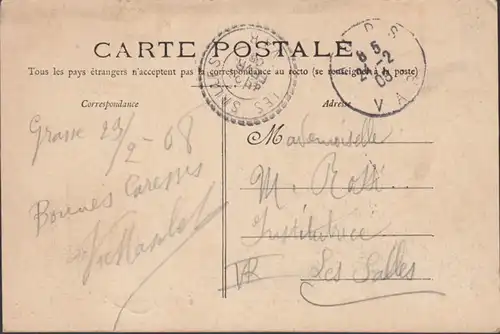 CARTE POSTALE
Tous les pays étrangers n'acceptent pas la correspondance au recto (se renseigner à la poste)
Correspondance
Adresse
Grasse 23/2-08
Bonnes Caresses
Mademoiselle
M. Rossi
Institutrice
Les Salles
8 5
24 -2
08
VAR